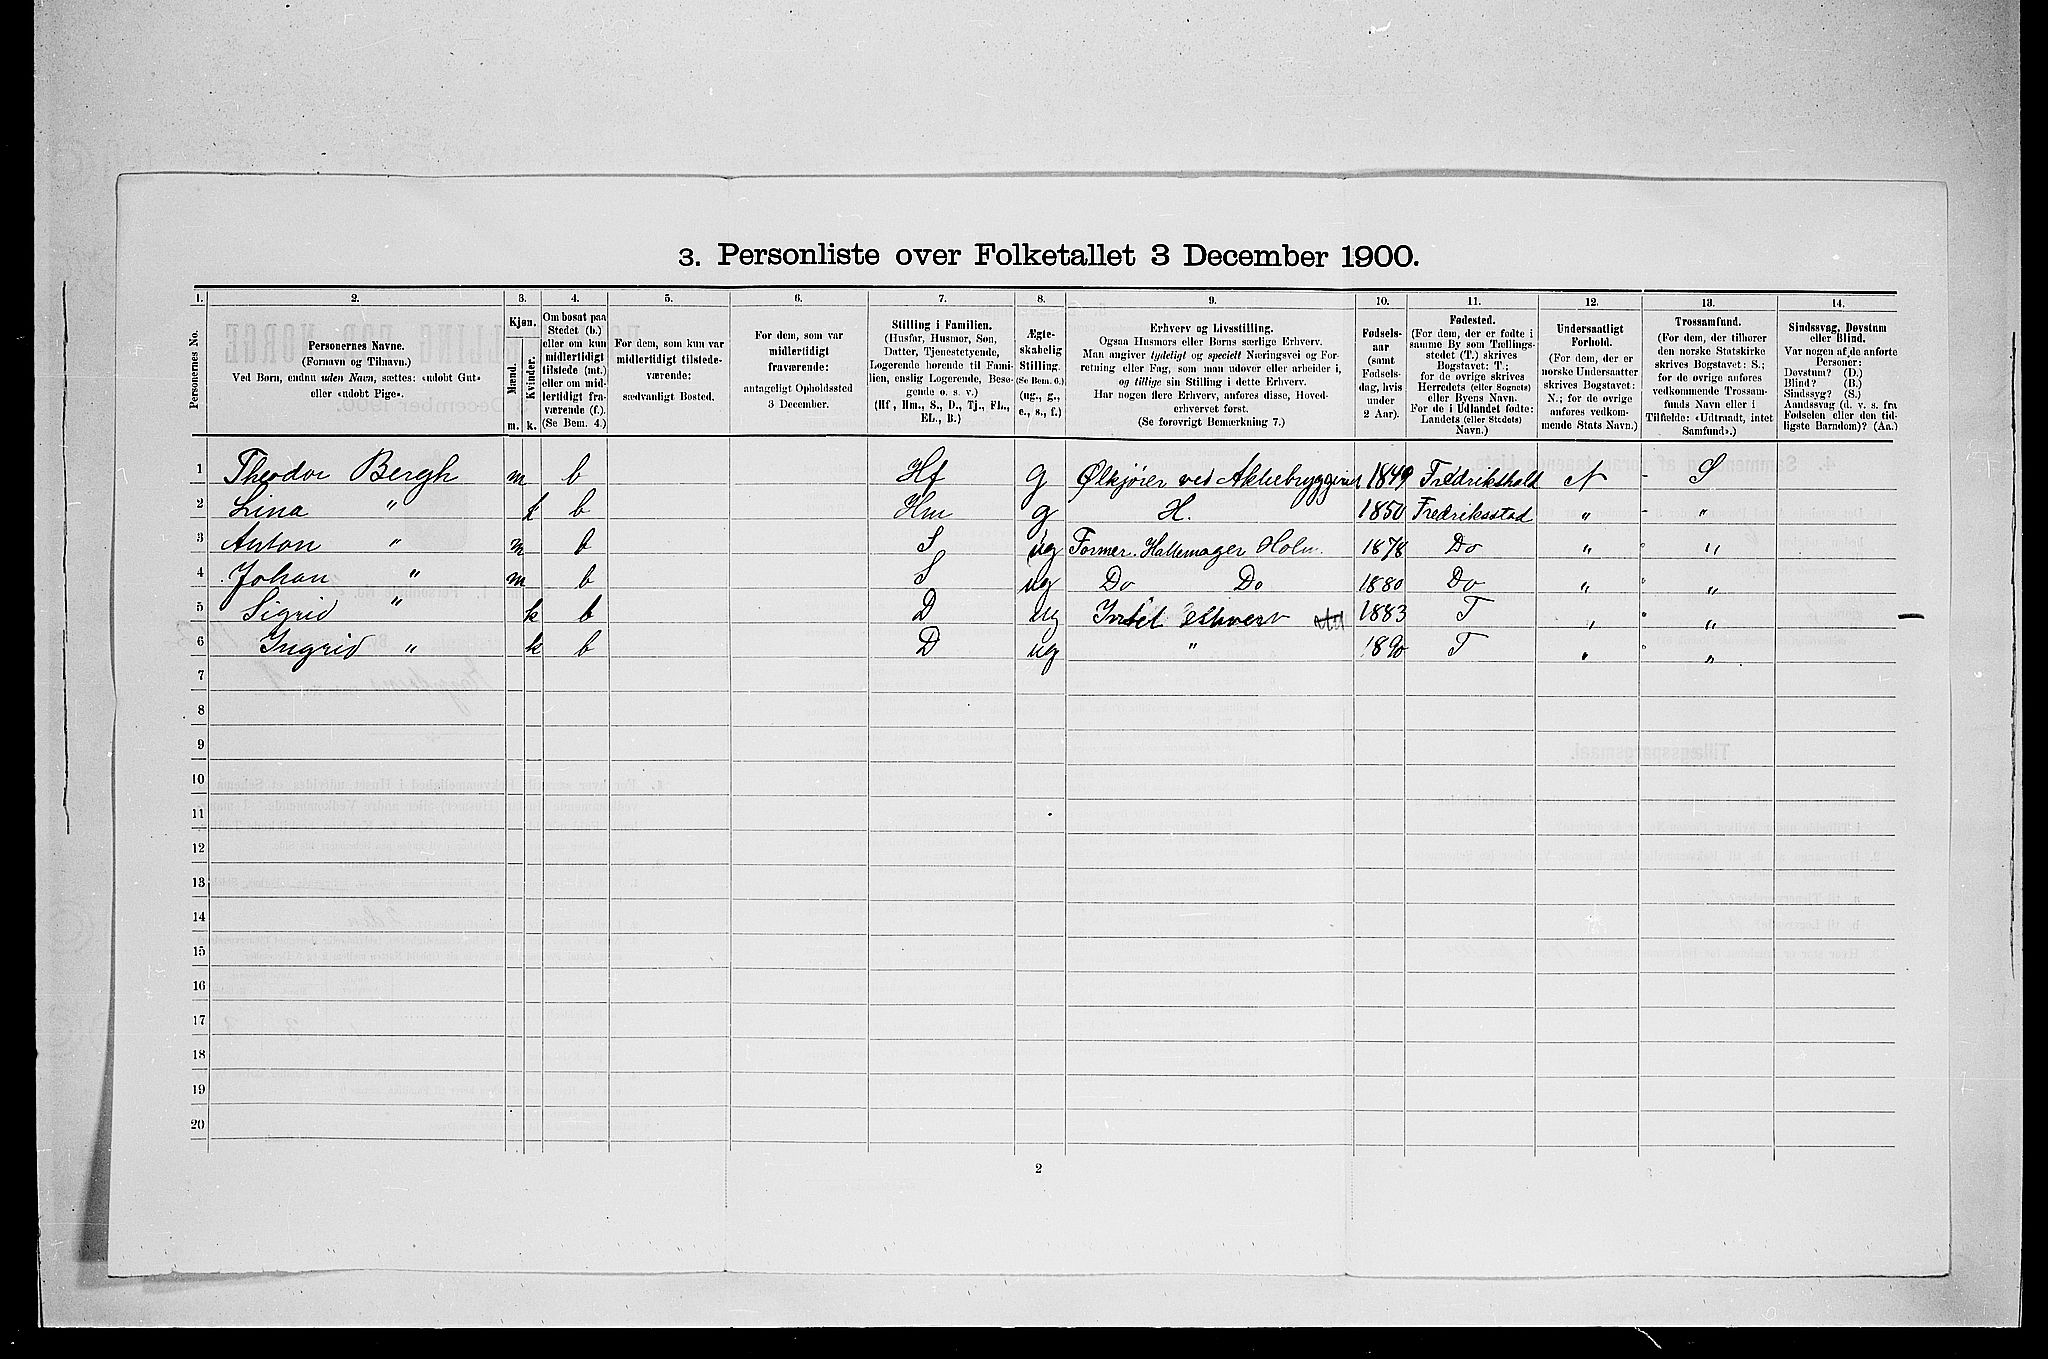 3. Personliste over Folketallet 3 December 1900.
1. 2. 3. 4. 5. 6. 7. 8. 9. 10. 11. 12. 13. 14.
Personernes No.
Personernes Navne.
(Fornavn og Tilnavn.)
Ved Børn, endnu uden Navn, sættes: «udøbt Gut»
eller «udøbt Pige».
Kjøn.
Mænd.
Kvinder.
m. k.
Om bosat paa
Stedet (b.)
eller om kun
midlertidigt
tilstede (mt.)
eller om mid-
lertidigt fra-
værende (f.)
(Se Bem. 4.)
For dem, som kun var
midlertidigt tilstede-
værende:
sædvanligt Bosted.
For dem, som var
midlertidigt
fraværende:
antageligt Opholdssted
3 December.
Stilling i Familien.
(Husfar, Husmor, Søn,
Datter, Tjenestetyende,
Logerende hørende til Fami-
lien, enslig Logerende, Besø-
gende o. s. v.)
(Hf., Hm., S., D., Tj., FL.,
EL., B.)
Ægte-
skabelig
Stilling.
(Se Bem. 6.)
(ug., g.,
e., s., f.)
Erhverv og Livsstilling.
Ogsaa Husmors eller Børns særlige Erhverv.
Man angiver tydeligt og specielt Næringsvei og For-
retning eller Fag, som man udøver eller arbeider i,
og tillige sin Stilling i dette Erhverv.
Har nogen flere Erhverv, anføres disse, Hoved-
erhvervet først.
(Se forøvrigt Bemærkning 7.)
Fødsels-
aar
(samt
Fødsels-
dag, hvis
under
2 Aar).
Fødested.
(For dem, der er fødte i
samme By som Tællings-
stedet (T.) skrives
Bogstavet: T.;
for de øvrige skrives
Herredets (eller Sognets)
eller Byens Navn.
For de i Udlandet fødte:
Landets (eller Stedets)
Navn.)
Undersaatligt
Forhold.
(For dem, der er
norske Undersaatter
skrives Bogstavet:
N.; for de øvrige
anføres vedkom-
mende Stats Navn.)
Trossamfund.
(For dem, der tilhører
den norske Statskirke
skrives Bogstavet: S.;
for de øvrige anføres
vedkommende Trossam-
funds Navn eller i
Tilfælde: «Udtraadt, intet
Samfund».)
Sindssvag, Døvstum
eller Blind.
Var nogen af de anførte
Personer:
Døvstum? (D.)
Blind? (B.)
Sindssyg? (S.)
Aandssvag (d. v. s. fra
Fødselen eller den tid-
ligste Barndom)? (Aa.)
1 Theodor Bergh m b Hf g Ølkjører ved Aktiebryggeriet 1849 Fredrikshald N S
2 Lina " k b Hm g H. 1850 Fredriksstad " "
3 Anton " m b S ug Former. Holm. 1878 Do " "
4 Johan " m b S ug Do Do 1880 Do " "
5 Sigrid " k b D ug Intet Erhverv 1883 T " "
6 Ingrid " k b D ug " 1890 T " "
7
8
9
10
11
12
13
14
15
16
17
18
19
20
2